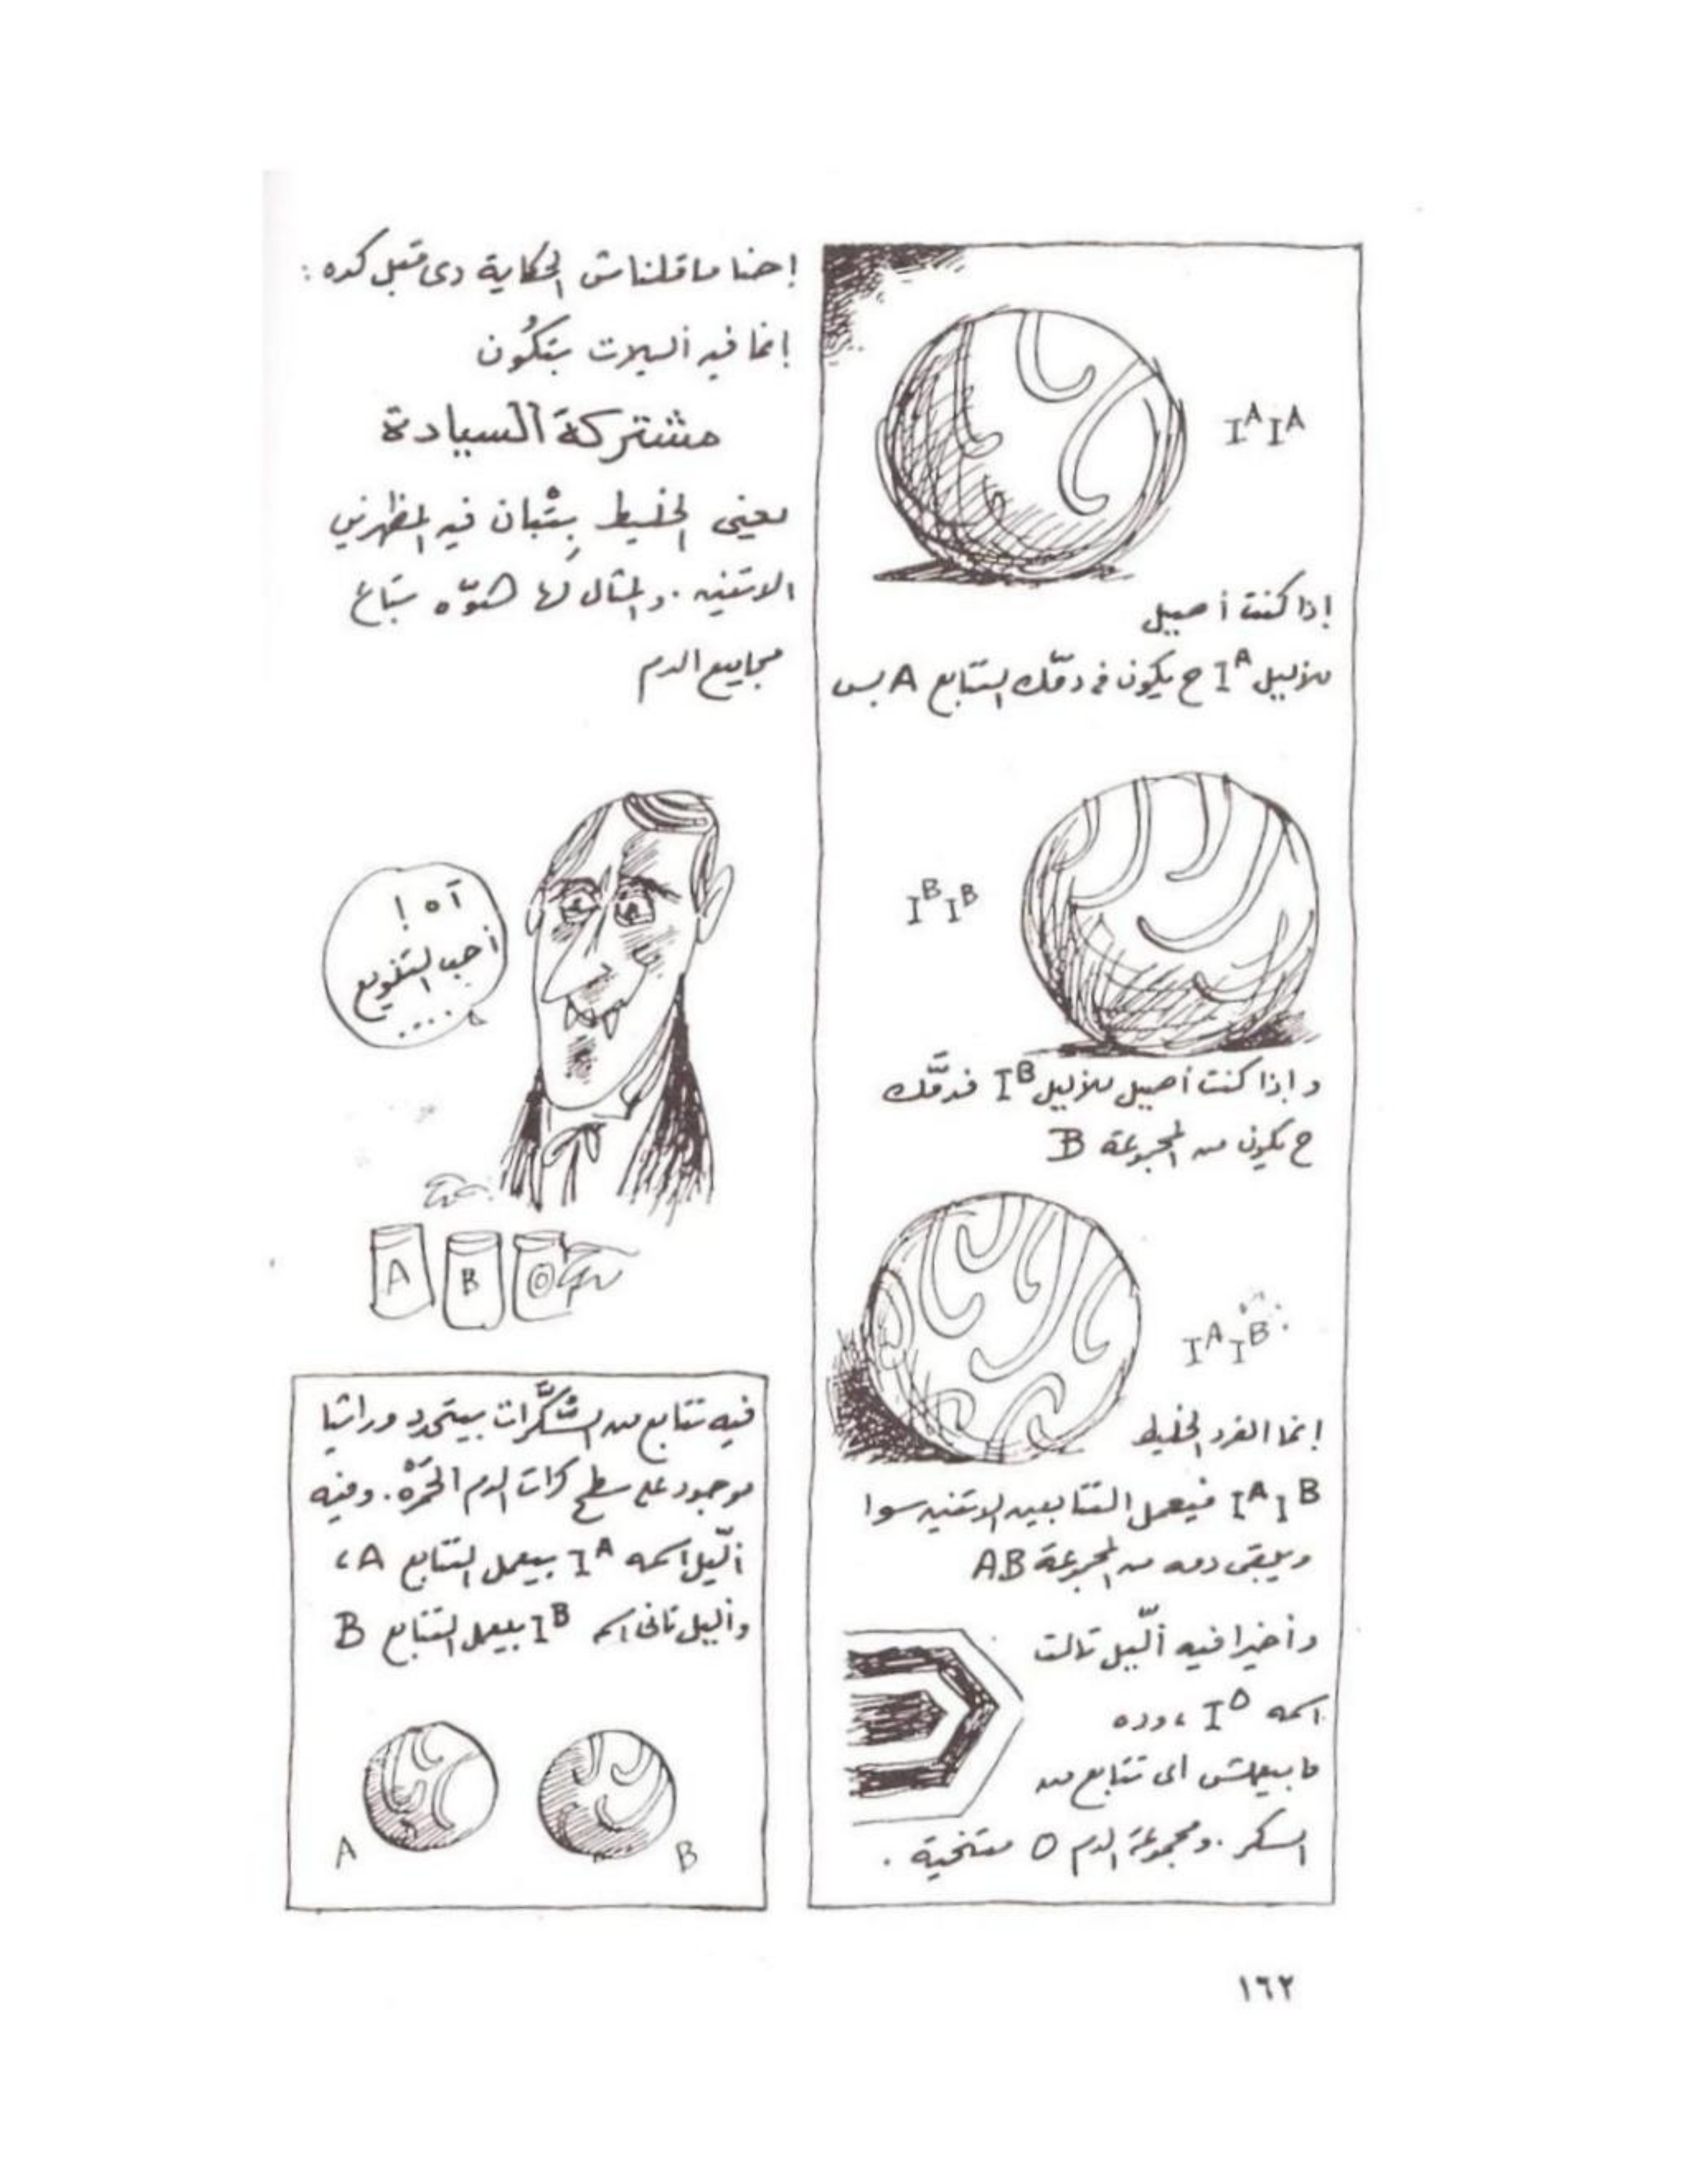 إحنا ماقلناش الحكاية دى قبل كده :
إنما فيه أليلات بتكُون
مشتركة السيادة
يعنى الخليط بِتْبان فيه المظهرين
الاتنين . والمثال لها هوّه بتاع
مجاميع الدم
آه !
أحب التنويع
....
A
B
O
فيه تتابع من السُّكَّرات بيتحدد وراثيا
موجود على سطح كرات الدم الحَمْرَه . وفيه
ألّيل اسمه I^A بيعمل التتابع A ،
وأليل تانى اسمه I^B بيعمل التتابع B
A
B
I^A I^A
إذا كنت أصيل
للأليل I^A ح يكون فى دمّك التتابع A بس
I^B I^B
و إذا كنت أصيل للأليل I^B فدمَّك
ح يكون من المجموعة B
I^A I^B
إنما الفرد الخليط
I^A I^B فيعمل التتابعين الاتنين سوا
ويبقى دمه من المجموعة AB
وأخيرا فيه ألّيل تالت
اسمه I^O ، وده
مابيعملش أى تتابع من
السكر . ومجموعة الدم O متنحية .
١٦٢